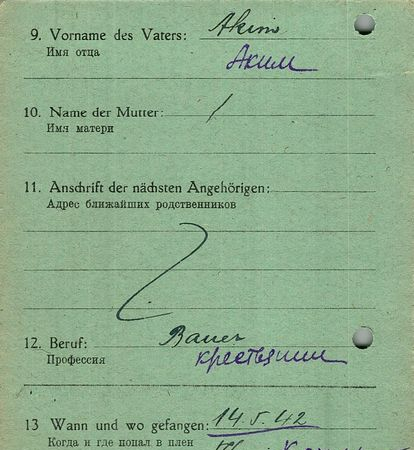 9. Vorname des Vaters: Akim
Имя отца Аким
10. Name der Mutter: /
Имя матери
11. Anschrift der nächsten Angehörigen:
Адрес ближайших родственников
12. Beruf: Bauer
Профессия крестьянин
13 Wann und wo gefangen: 14.5.42
Когда и где попал в плен